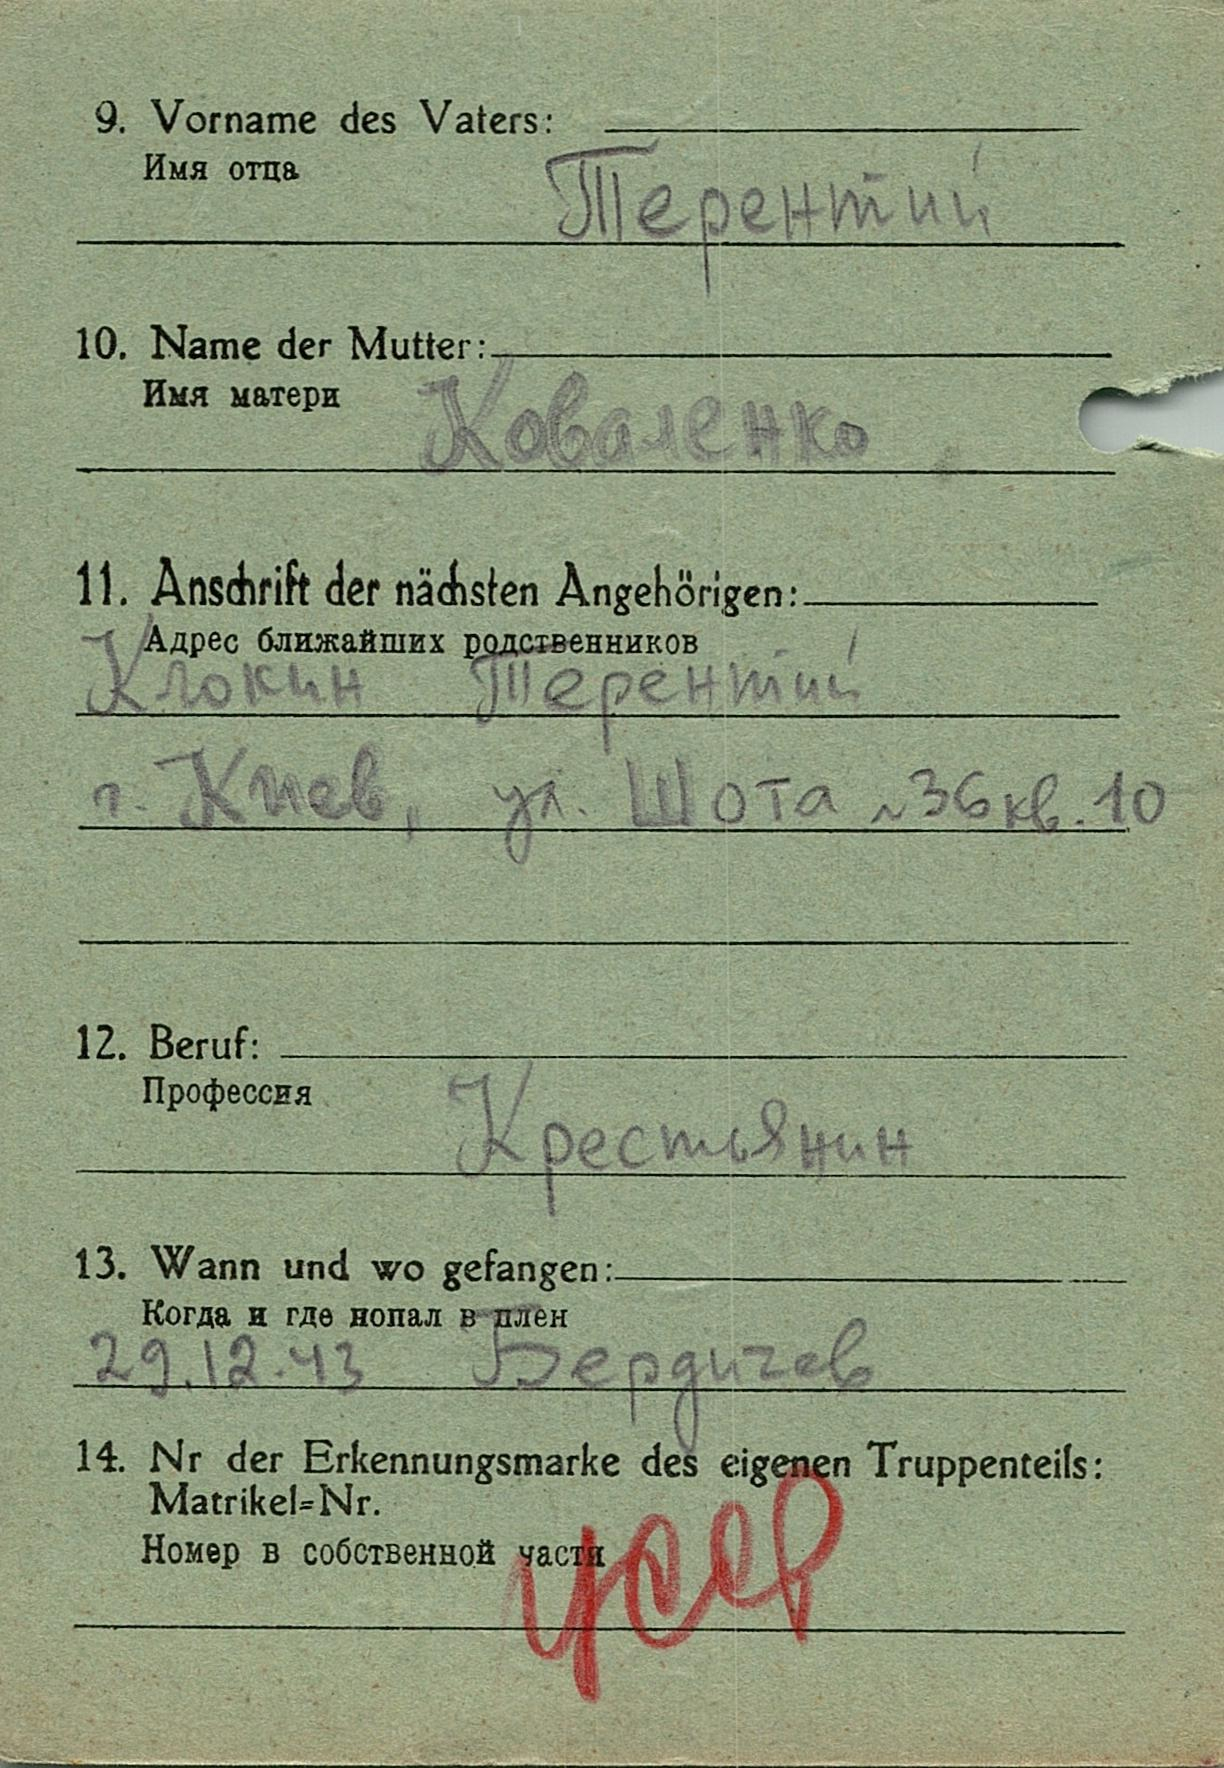 9. Vorname des Vaters:
Имя отца
Терентий
10. Name der Mutter:
Имя матери
Коваленко
11. Anschrift der nächsten Angehörigen:
Адрес ближайших родственников
Клокин Терентий
г. Киев, ул. Шота №36 кв. 10
12. Beruf:
Профессия
Крестьянин
13. Wann und wo gefangen:
Когда и где попал в плен
29.12.43 Бердичев
14. Nr der Erkennungsmarke des eigenen Truppenteils:
Matrikel=Nr.
Номер в собственной части